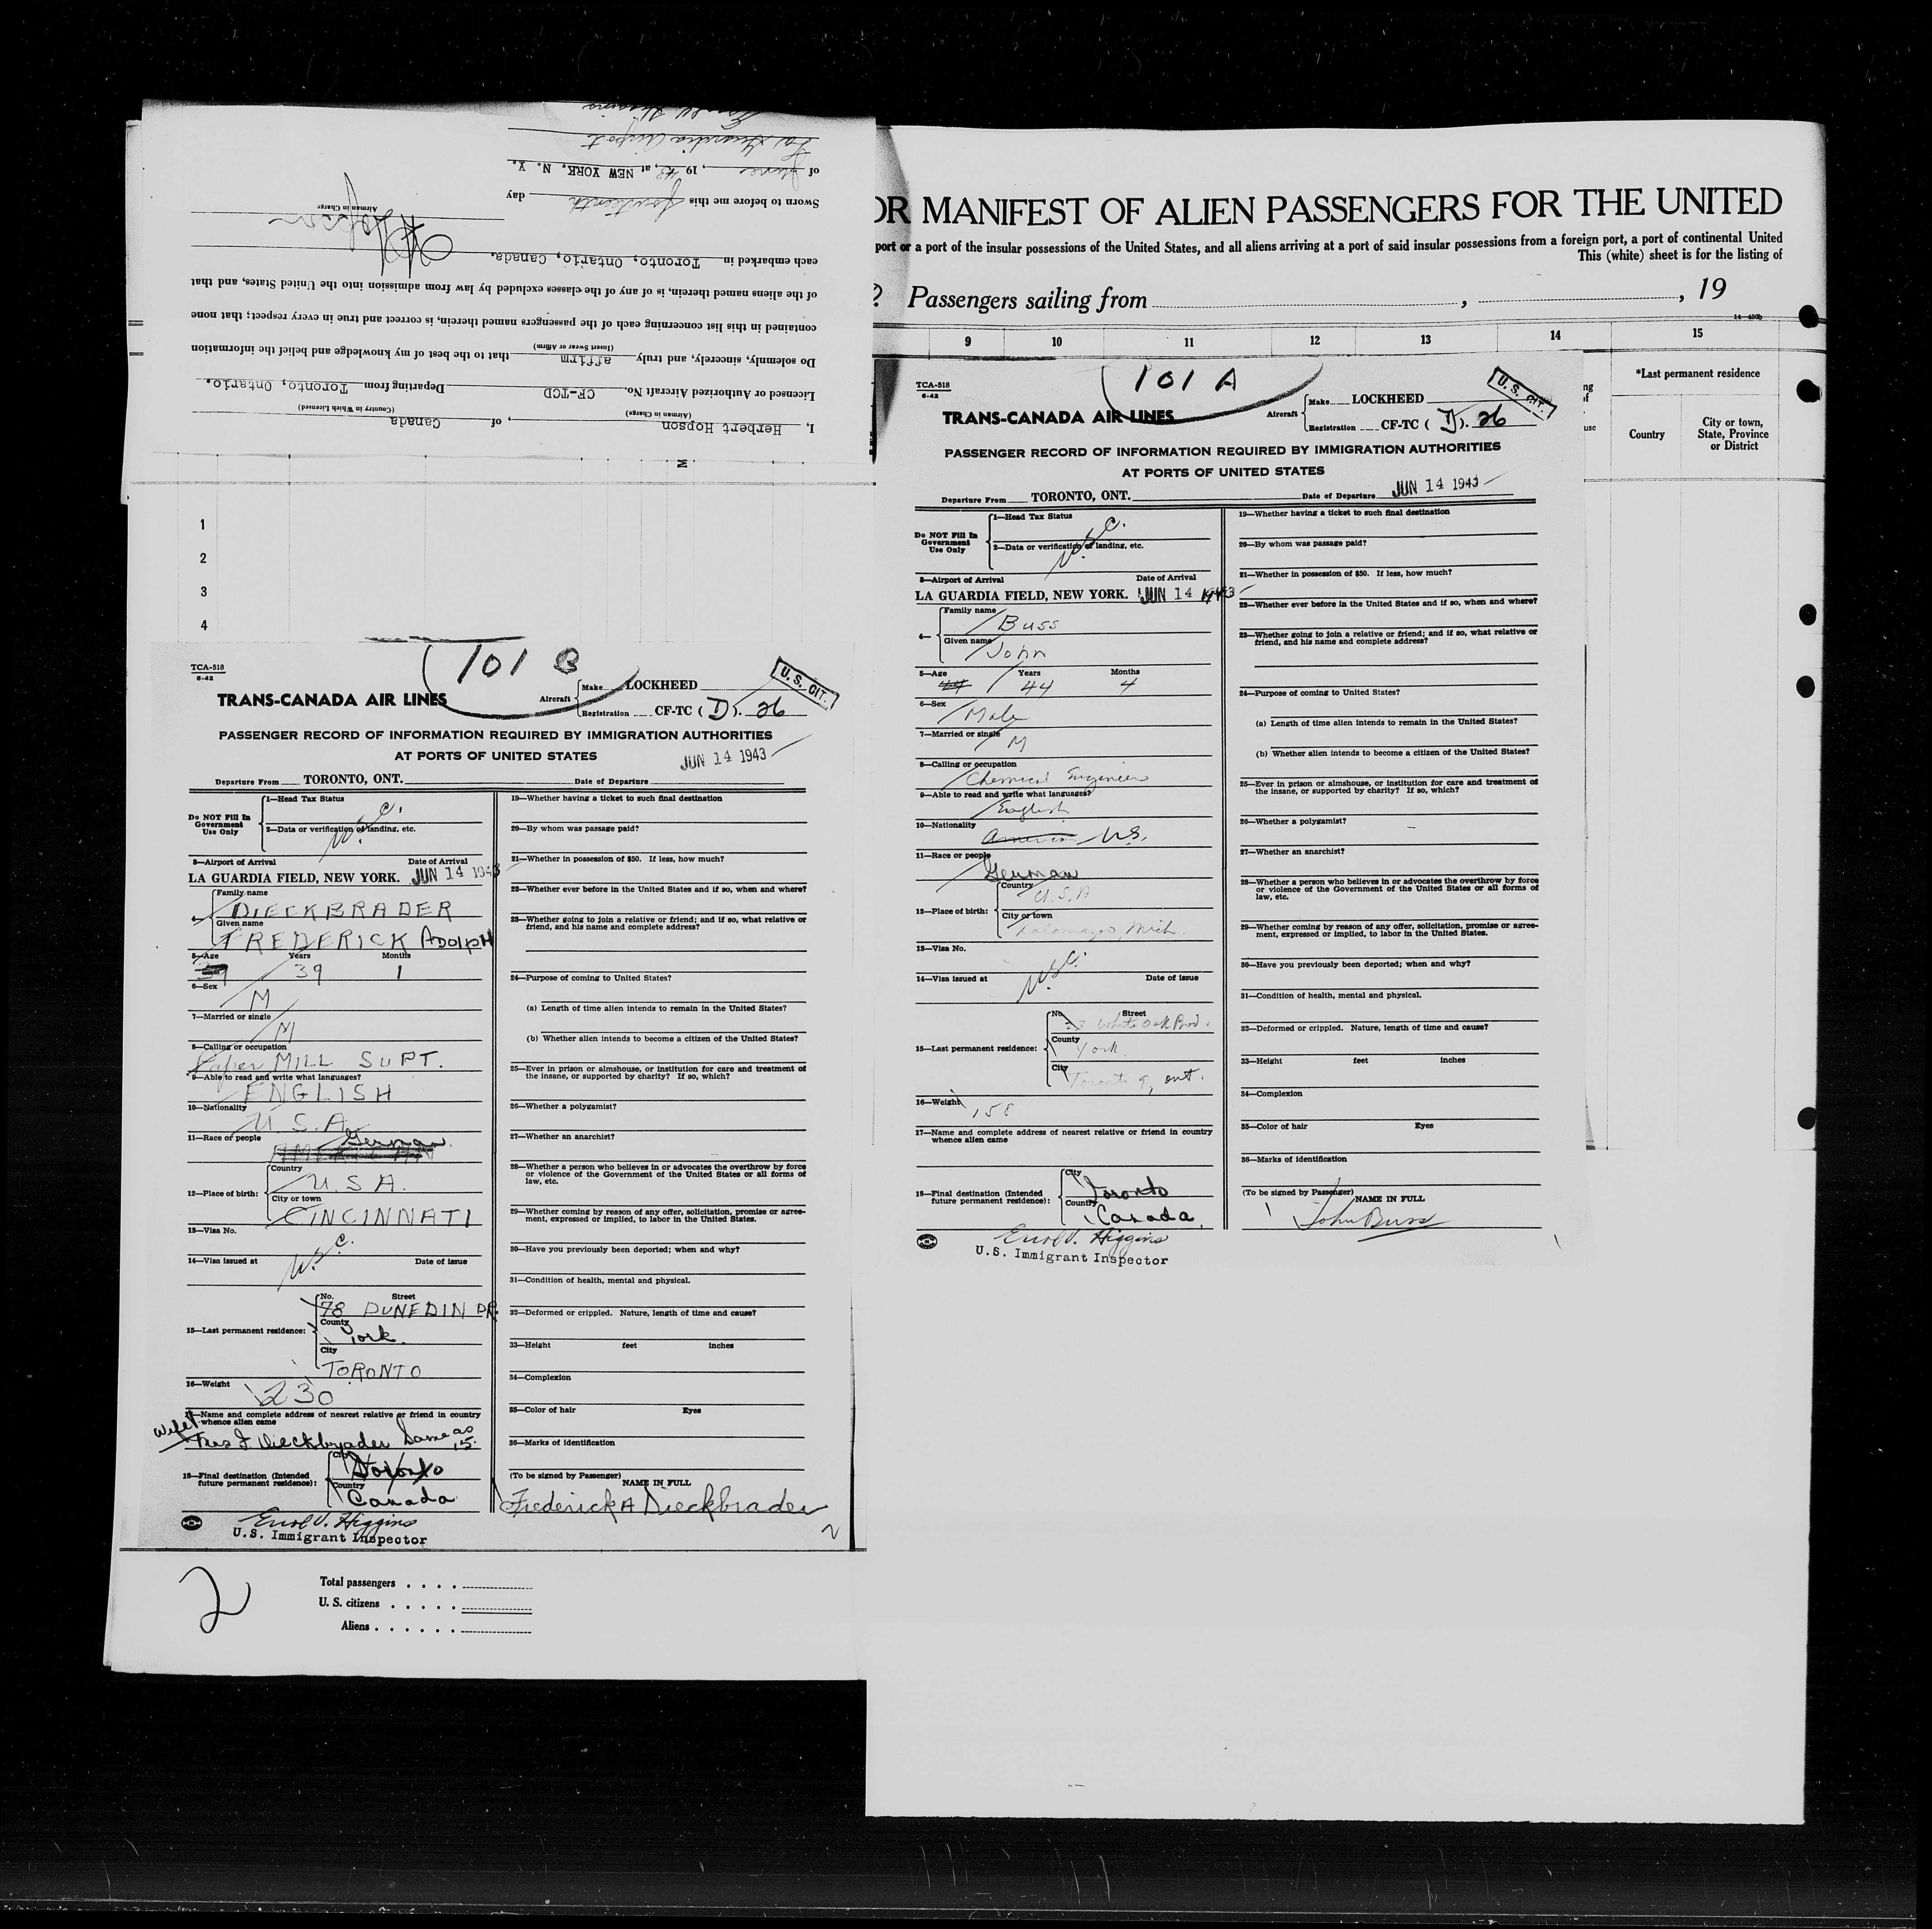 Sworn to before me this fourteenth day
of June, 1943, at NEW YORK, N. Y.
La Guardia Airport
I, Herbert Hopson, of Canada
(Airman in Charge) (Country in Which Licensed)
Licensed or Authorized Aircraft No. CF-TCD Departing from Toronto, Ontario.
Do solemnly, sincerely, and truly affirm that to the best of my knowledge and belief the information
(Insert Swear or Affirm)
contained in this list concerning each of the passengers named therein, is correct and true in every respect; that none
of the aliens named therein, is of any of the classes excluded by law from admission into the United States, and that
each embarked in Toronto, Ontario, Canada.
H Hopson
Airman in Charge
1
2
3
4
101 B
TCA-518
6-42
U. S. CIT.
TRANS-CANADA AIR LINES
Aircraft Make LOCKHEED
Registration CF-TC (D). 26
PASSENGER RECORD OF INFORMATION REQUIRED BY IMMIGRATION AUTHORITIES
AT PORTS OF UNITED STATES
JUN 14 1943
Departure From TORONTO, ONT. Date of Departure
Do NOT Fill In
Government
Use Only
1—Head Tax Status
2—Data or verification of landing, etc.
U.S.C.
3—Airport of Arrival Date of Arrival
LA GUARDIA FIELD, NEW YORK. JUN 14 1943
4— Family name
DIECKBRADER
Given name
FREDERICK ADOLPH
5—Age Years Months
39 1
6—Sex
M
7—Married or single
M
8—Calling or occupation
Paper MILL SUPT.
9—Able to read and write what languages?
ENGLISH
10—Nationality
U.S.A.
11—Race or people German
AMERICAN
12—Place of birth: Country
U.S.A.
City or town
CINCINNATI
13—Visa No.
U.S.C.
14—Visa issued at Date of issue
15—Last permanent residence:
No. Street
78 DUNEDIN DR.
County
York
City
TORONTO
16—Weight
230
17—Name and complete address of nearest relative or friend in country
whence alien came
Wife Mrs F Dieckbrader Same as 15.
18—Final destination (Intended
future permanent residence):
City
Toronto
Country
Canada
Errol V. Higgins
U.S. Immigrant Inspector
19—Whether having a ticket to such final destination
20—By whom was passage paid?
21—Whether in possession of $50. If less, how much?
22—Whether ever before in the United States and if so, when and where?
23—Whether going to join a relative or friend; and if so, what relative or
friend, and his name and complete address?
24—Purpose of coming to United States?
(a) Length of time alien intends to remain in the United States?
(b) Whether alien intends to become a citizen of the United States?
25—Ever in prison or almshouse, or institution for care and treatment of
the insane, or supported by charity? If so, which?
26—Whether a polygamist?
27—Whether an anarchist?
28—Whether a person who believes in or advocates the overthrow by force
or violence of the Government of the United States or all forms of
law, etc.
29—Whether coming by reason of any offer, solicitation, promise or agree-
ment, expressed or implied, to labor in the United States.
30—Have you previously been deported; when and why?
31—Condition of health, mental and physical.
32—Deformed or crippled. Nature, length of time and cause?
33—Height feet inches
34—Complexion
35—Color of hair Eyes
36—Marks of identification
(To be signed by Passenger)
NAME IN FULL
Frederick A Dieckbrader
2
Total passengers
U. S. citizens
Aliens
OR MANIFEST OF ALIEN PASSENGERS FOR THE UNITED
port or a port of the insular possessions of the United States, and all aliens arriving at a port of said insular possessions from a foreign port, a port of continental United
This (white) sheet is for the listing of
Passengers sailing from , , 19
9 10 11 12 13 14 15
*Last permanent residence
Country
City or town,
State, Province
or District
101 A
TCA-518
6-42
U. S. CIT.
TRANS-CANADA AIR LINES
Aircraft Make LOCKHEED
Registration CF-TC (D). 26
PASSENGER RECORD OF INFORMATION REQUIRED BY IMMIGRATION AUTHORITIES
AT PORTS OF UNITED STATES
Departure From TORONTO, ONT. Date of Departure JUN 14 1943
Do NOT Fill In
Government
Use Only
1—Head Tax Status
2—Data or verification of landing, etc.
U.S.C.
3—Airport of Arrival Date of Arrival
LA GUARDIA FIELD, NEW YORK. JUN 14 1943
4— Family name
Buss
Given name
John
5—Age Years Months
44 44 4
6—Sex
Male
7—Married or single
M
8—Calling or occupation
Chemical Engineer
9—Able to read and write what languages?
English
10—Nationality
American U.S.
11—Race or people
German
12—Place of birth: Country
U.S.A
City or town
Kalamazoo, Mich.
13—Visa No.
U.S.C.
14—Visa issued at Date of issue
15—Last permanent residence:
No. Street
33 White Oak Blvd.
County
York
City
Toronto 9, Ont.
16—Weight
158
17—Name and complete address of nearest relative or friend in country
whence alien came
18—Final destination (Intended
future permanent residence):
City
Toronto
Country
Canada
Errol V. Higgins
U.S. Immigrant Inspector
19—Whether having a ticket to such final destination
20—By whom was passage paid?
21—Whether in possession of $50. If less, how much?
22—Whether ever before in the United States and if so, when and where?
23—Whether going to join a relative or friend; and if so, what relative or
friend, and his name and complete address?
24—Purpose of coming to United States?
(a) Length of time alien intends to remain in the United States?
(b) Whether alien intends to become a citizen of the United States?
25—Ever in prison or almshouse, or institution for care and treatment of
the insane, or supported by charity? If so, which?
26—Whether a polygamist?
27—Whether an anarchist?
28—Whether a person who believes in or advocates the overthrow by force
or violence of the Government of the United States or all forms of
law, etc.
29—Whether coming by reason of any offer, solicitation, promise or agree-
ment, expressed or implied, to labor in the United States.
30—Have you previously been deported; when and why?
31—Condition of health, mental and physical.
32—Deformed or crippled. Nature, length of time and cause?
33—Height feet inches
34—Complexion
35—Color of hair Eyes
36—Marks of identification
(To be signed by Passenger)
NAME IN FULL
John Buss